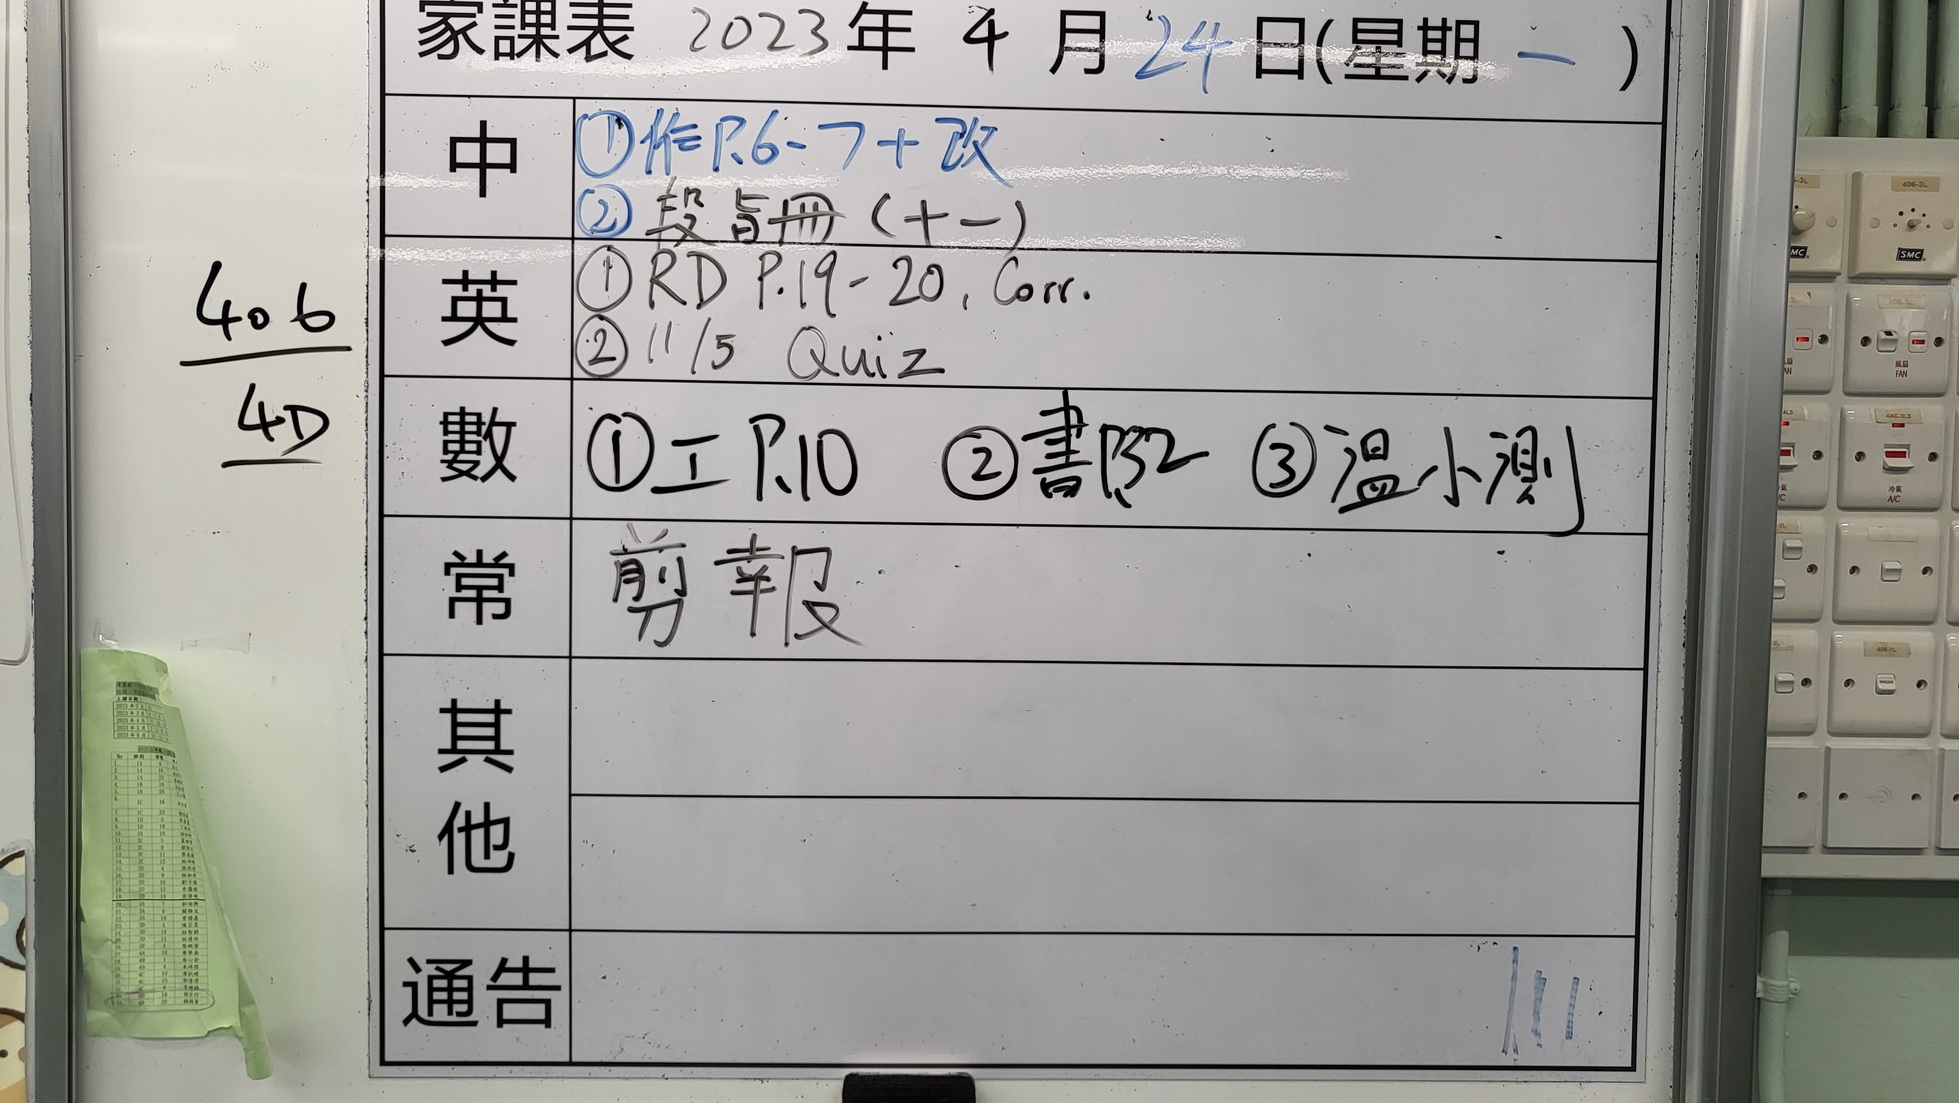 家課表 2023年 4 月 24日(星期 一 )
中
①作P.6-7+改
②段旨冊(十一)
英
①RD P.19-20, Corr.
②11/5 Quiz
數
①工P.10 ②書P.32 ③溫小測
常
剪報
其他
通告
406
4D
SMC
風扇
FAN
冷氣
A/C